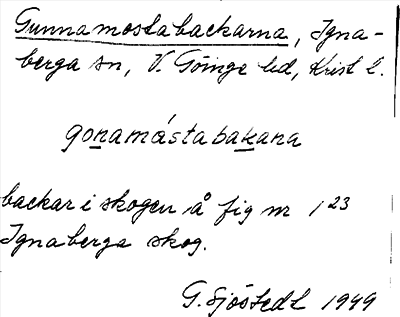 Gunnamostabackarna, Igna-
berga sn, V. Göinge hd, Krist l.
gonamástabakana
backar i skogen å fig nr 1 23
Ignaberga skog.
G. Sjöstedt 1949